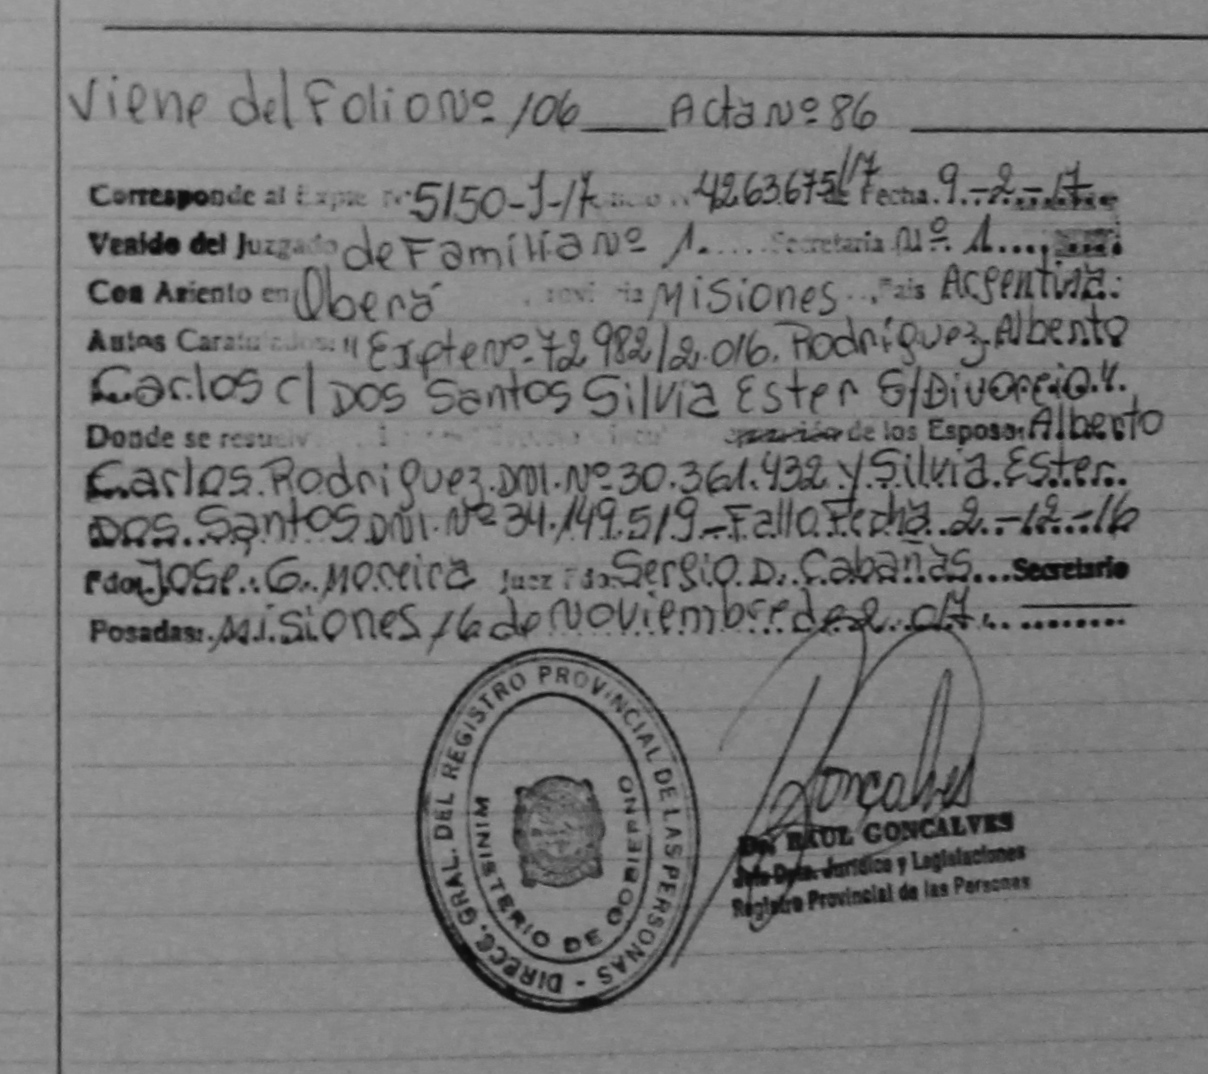 Viene del Folio Nº 106 ___ Acta Nº 86
Corresponde al Expte Nº 5150-J-17 4263675/17 Fecha 9.-2.-17
Venido del Juzgado de Familia Nº 1. Secretaria Nº 1
Con Asiento en Oberá Misiones Pais Argentina
Autos Caratulados: "Expte Nº 72982/2.016. Rodríguez Alberto
Carlos c/ Dos Santos Silvia Ester S/Divorcio".
Donde se resuelve de los Esposos Alberto
Carlos Rodríguez DNI. Nº 30.361.432 y Silvia Ester
Dos Santos DNI. Nº 34.149.519_ Fallo Fecha 2.-12.-16
Fdo. Jose. G. Moreira Juez Fdo. Sergio D. Cabañas Secretario
Posadas: Misiones 16 de Noviembre de 2.017.
DIRECC. GRAL. DEL REGISTRO PROVINCIAL DE LAS PERSONAS -
MINISTERIO DE GOBIERNO
Goncalves
Dr. RAUL GONCALVES
Jefe Dpto. Jurídico y Legislaciones
Registro Provincial de las Personas